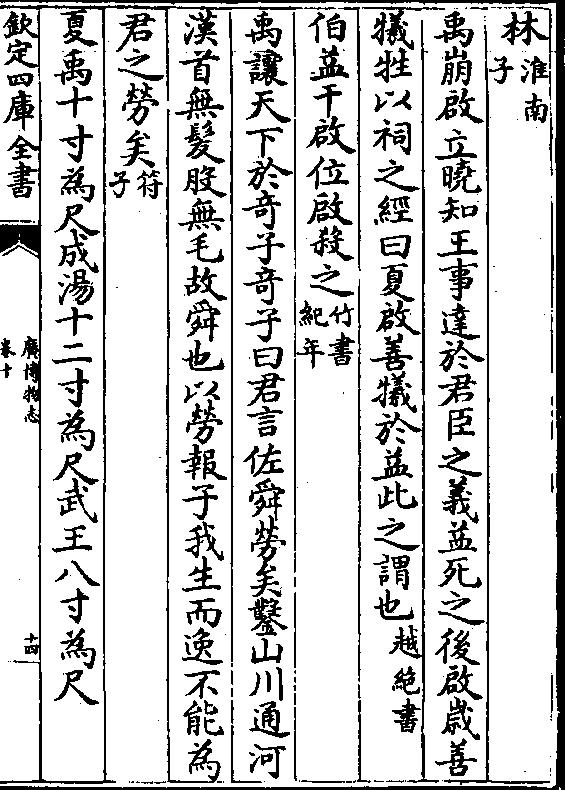 林淮南子
禹崩啟立曉知王事達於君臣之義益死之後啟歲善
犧牲以祠之經曰夏啟善犧於益此之謂也越絶書
伯益干啟位啟殺之竹書紀年
禹讓天下於奇子奇子曰君言佐舜勞矣鑿山川通河
漢首無髮股無毛故舜也以勞報子我生而逸不能為
君之勞矣符子
夏禹十寸為尺成湯十二寸為尺武王八寸為尺
欽定四庫全書
廣博物志
卷十
十四